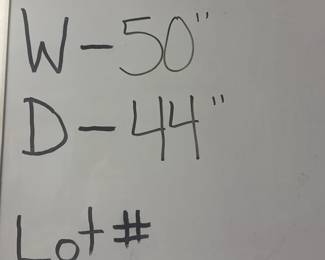 W-50"
D-44"
Lot #